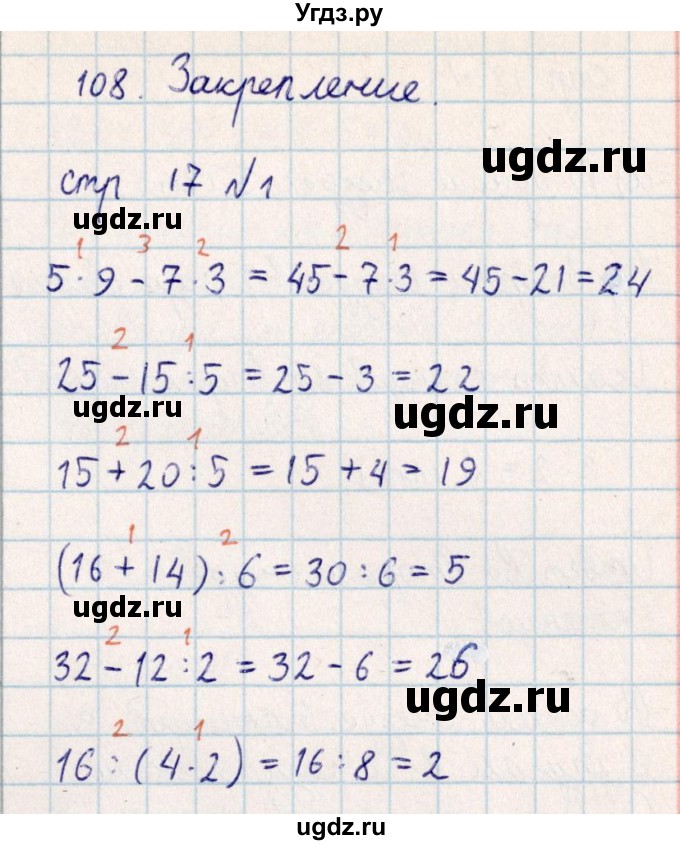 Угдз.ру
108. Закрепление.
ugdz.ru
стр 17 №1
ugdz.ru
1 3 2 2 1
5·9-7·3=45-7·3=45-21=24
2 1
25-15:5=25-3=22
ugdz.ru
ugdz.ru
2 1
15+20:5=15+4=19
1 2
(16+14):6=30:6=5
ugdz.ru
2 1
32-12:2=32-6=26
ugdz.ru
2 1
16:(4·2)=16:8=2
ugdz.ru